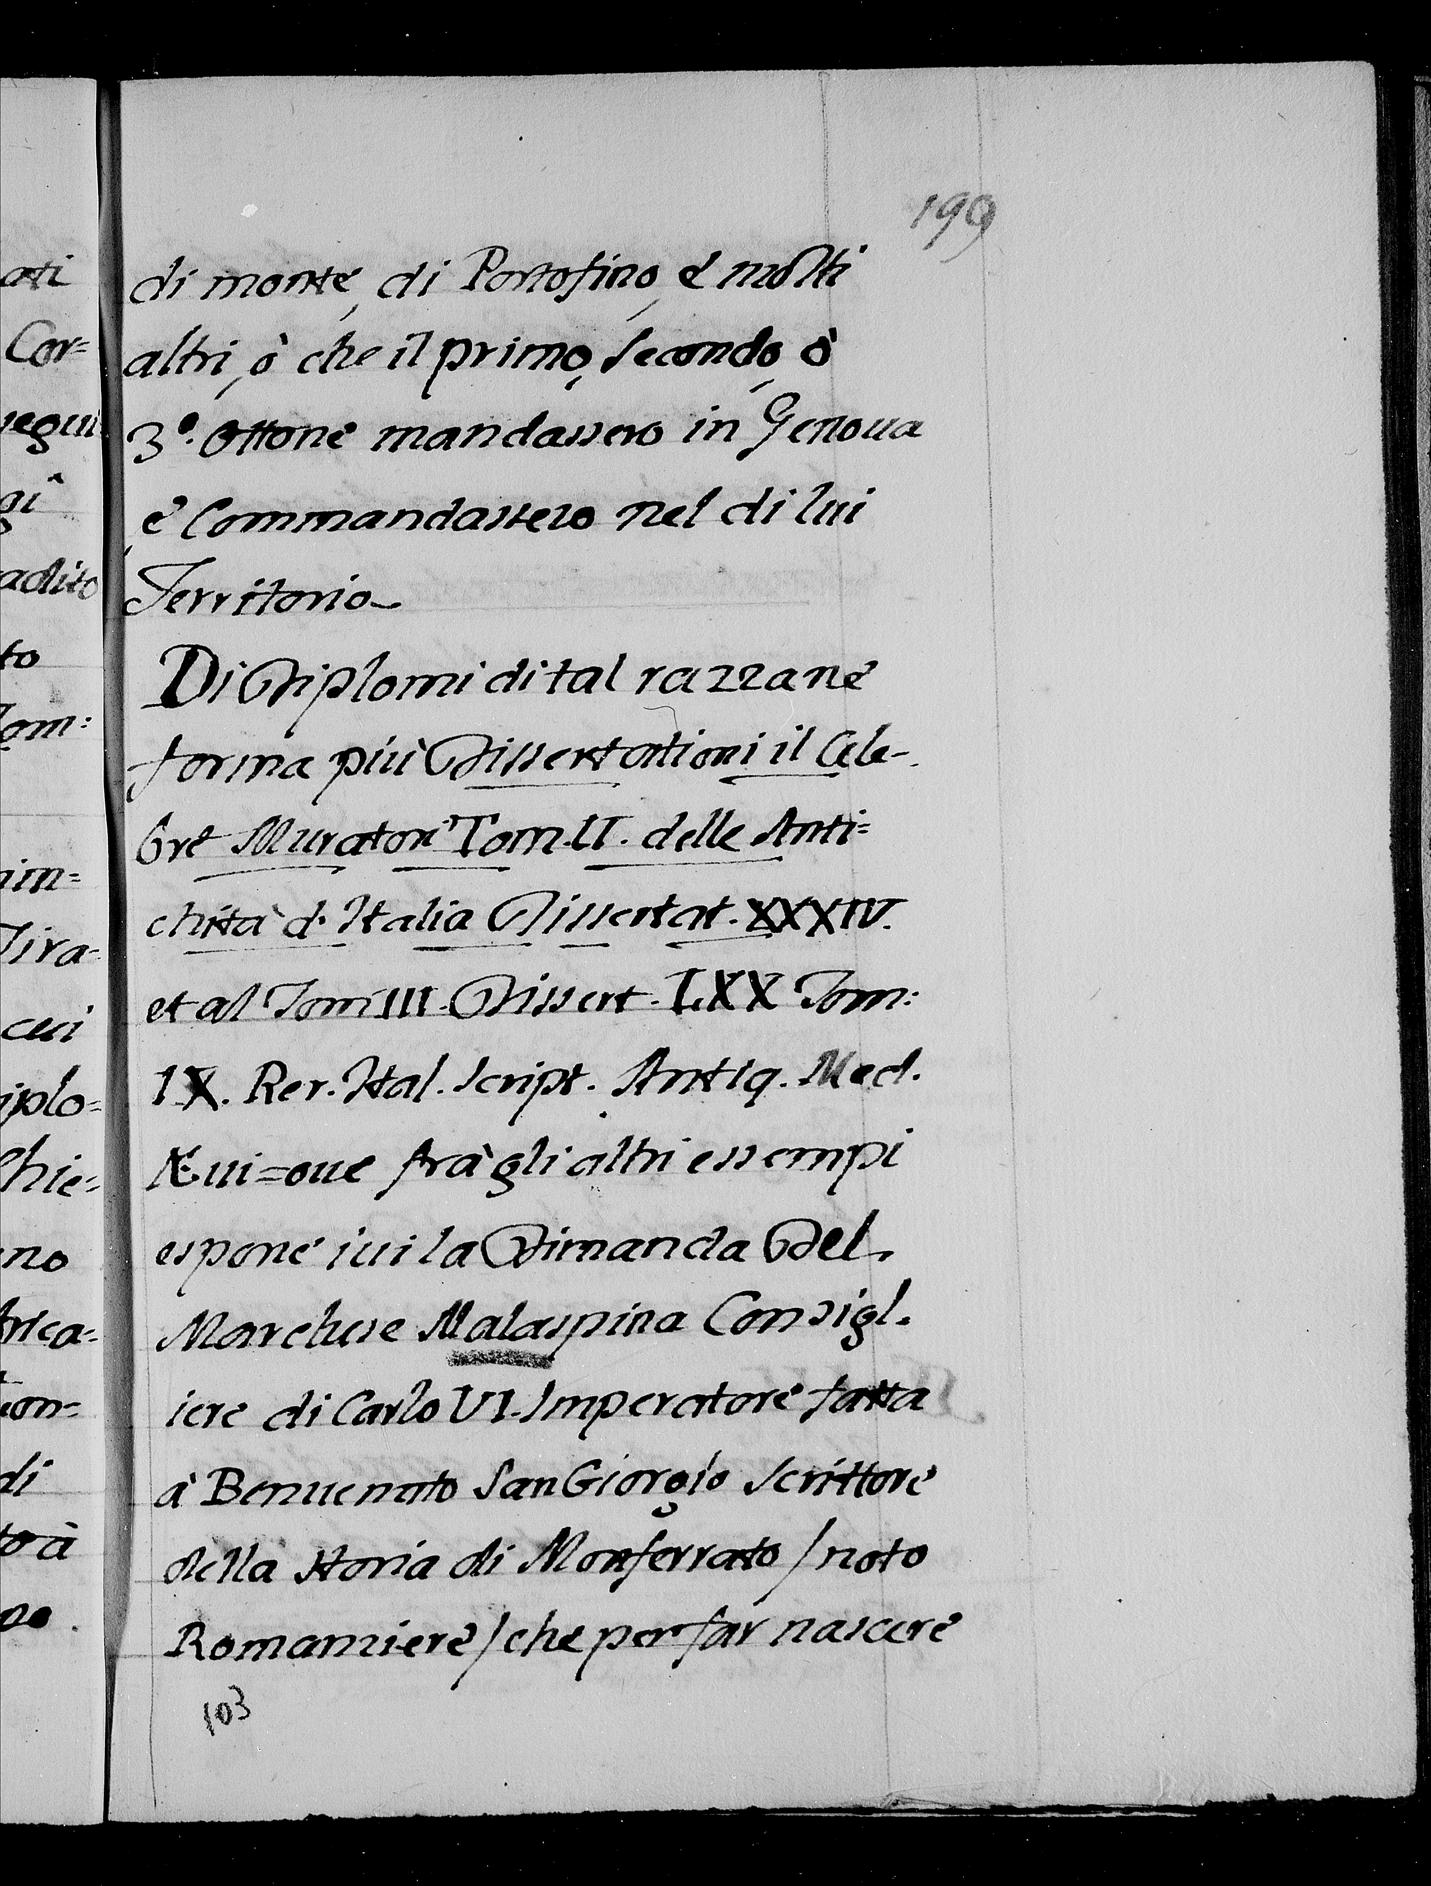 199
di monte, di Portofino, e molti
altri, ò che il primo, secondo, ò
3º. Ottone mandassero in Genoua
, e Commandassero nel di lui
Territorio
Di Diplomi di tal razza ne
forma più Dissertationi il Cele-
bre Muratori Tom. II. delle Anti=
chità d'Italia Dissertat. XXXIV.
et al Tom III. Dissert. LXX Tom:
IX. Rer. Ital. Script. Antiq. Med.
Æui = oue frà gli altri essempi
espone iui la Dimanda Del
Marchese Malaspina Consigl.
iere di Carlo VI. Imperatore fatta
à Benuenuto SanGiorgio scrittore
della storia di Monferrato / noto
Romanziere / che per far nascere
103
ati
Cor=
segui
gi
adito
to
Tom:
im=
Tira=
cui
iplo=
Chie=
no
frica=
ton=
di
to à
no.